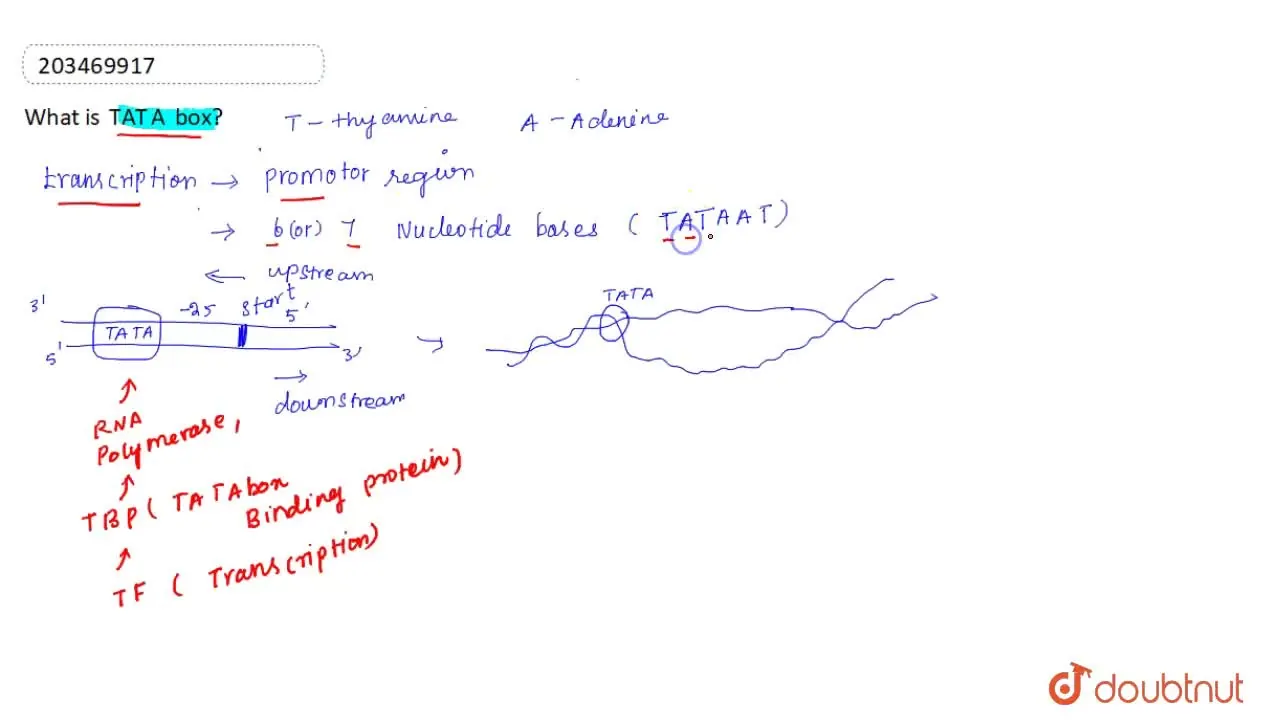 203469917
What is TATA box?
T - thyamine A - Adenine
transcription → promotor region
→ 6 (or) 7 Nucleotide bases ( TATAAT )
← upstream
3' -25 start 5'
TATA
5' 3'
→
downstream
→
TATA
↑
RNA
Polymerase,
↑
TBP ( TATA box
Binding protein)
↑
TF ( Transcription)
doubtnut